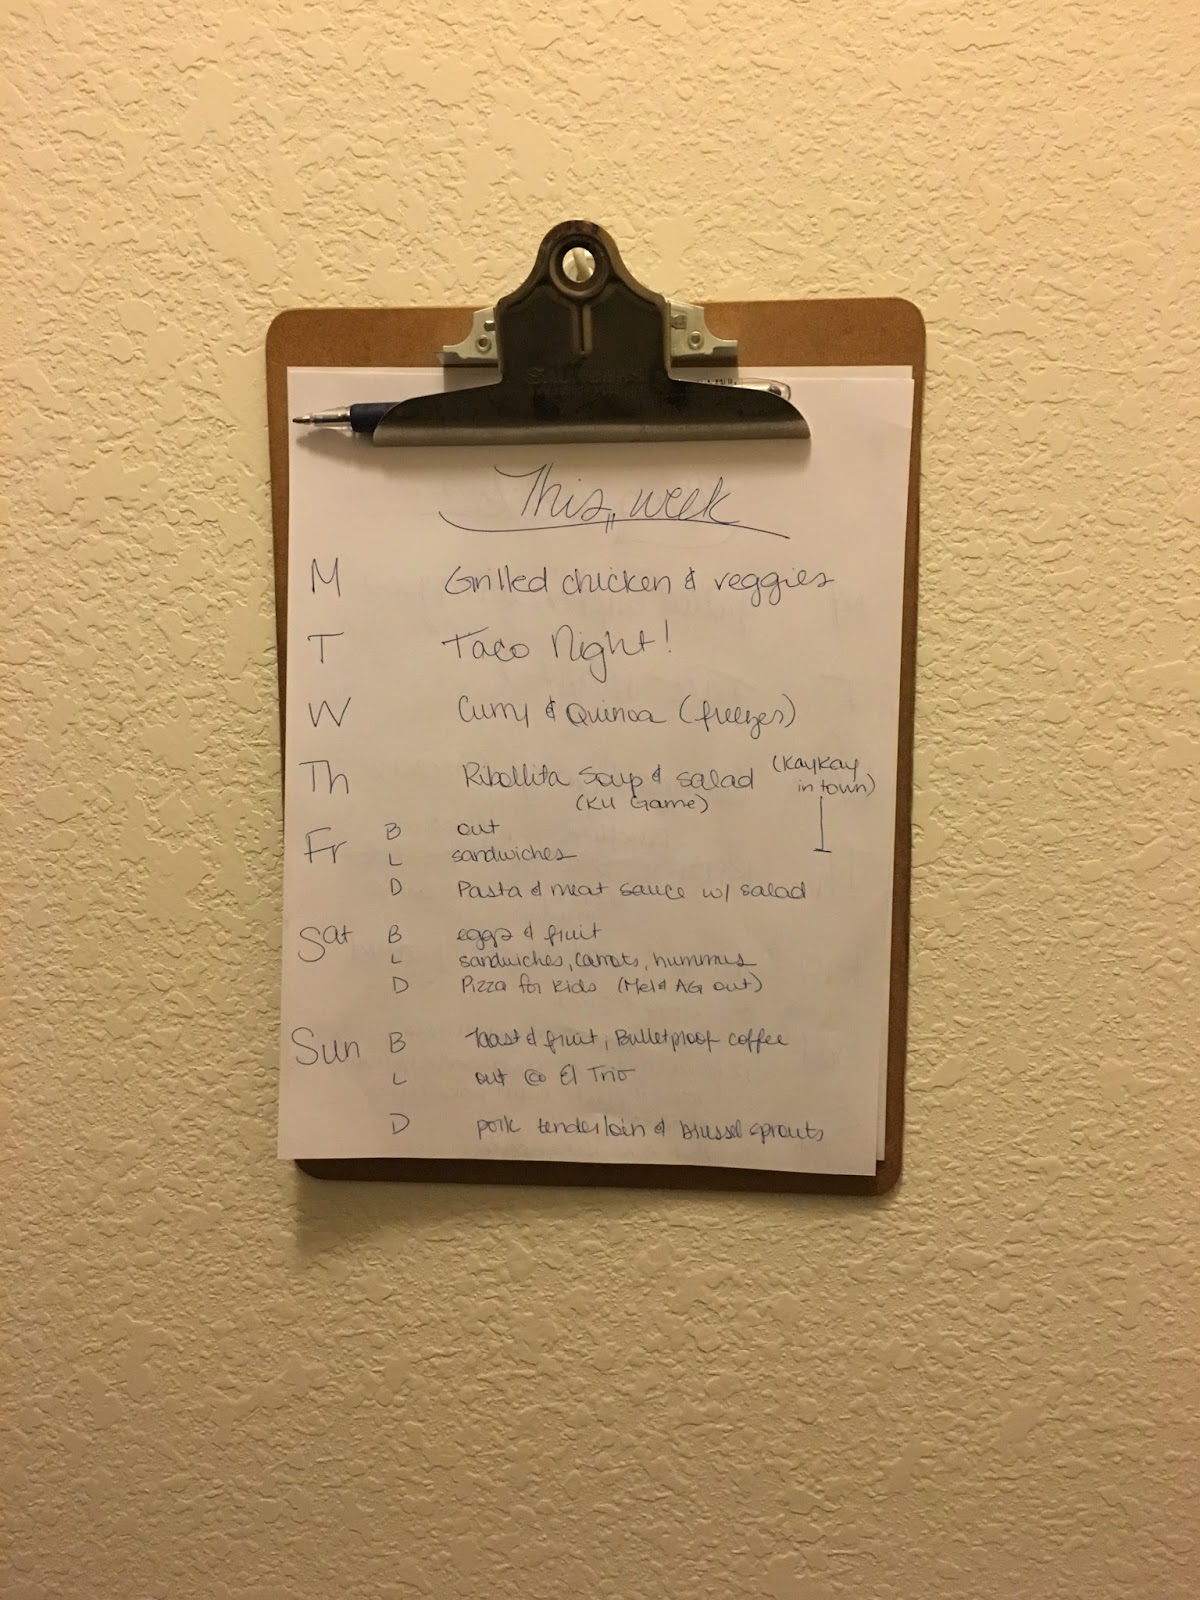 This week
M Grilled chicken & veggies
T Taco Night!
W Curry & Quinoa (freezer)
Th Ribollita Soup & salad (KayKay
in town)
(KU Game)
Fr B out
L sandwiches
D Pasta & meat sauce w/ salad
Sat B eggs & fruit
L sandwiches, carrots, hummus
D Pizza for kids (Mel & AG out)
Sun B toast & fruit, Bulletproof coffee
L out @ El Trio
D pork tenderloin & brussel sprouts